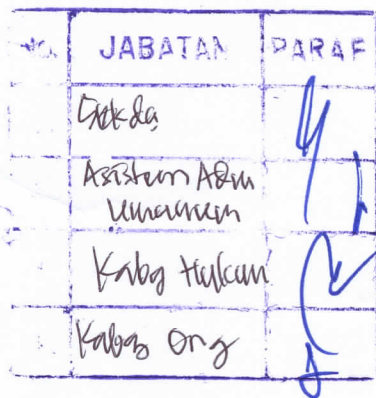 No. JABATAN PARAF
Sekda
Asisten Adm
Umum
Kabag Hukum
Kabag Org